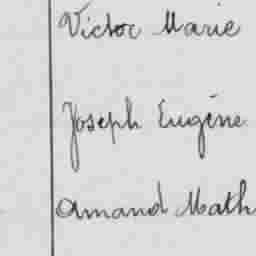 Victor Marie
Joseph Eugène
Amand Math